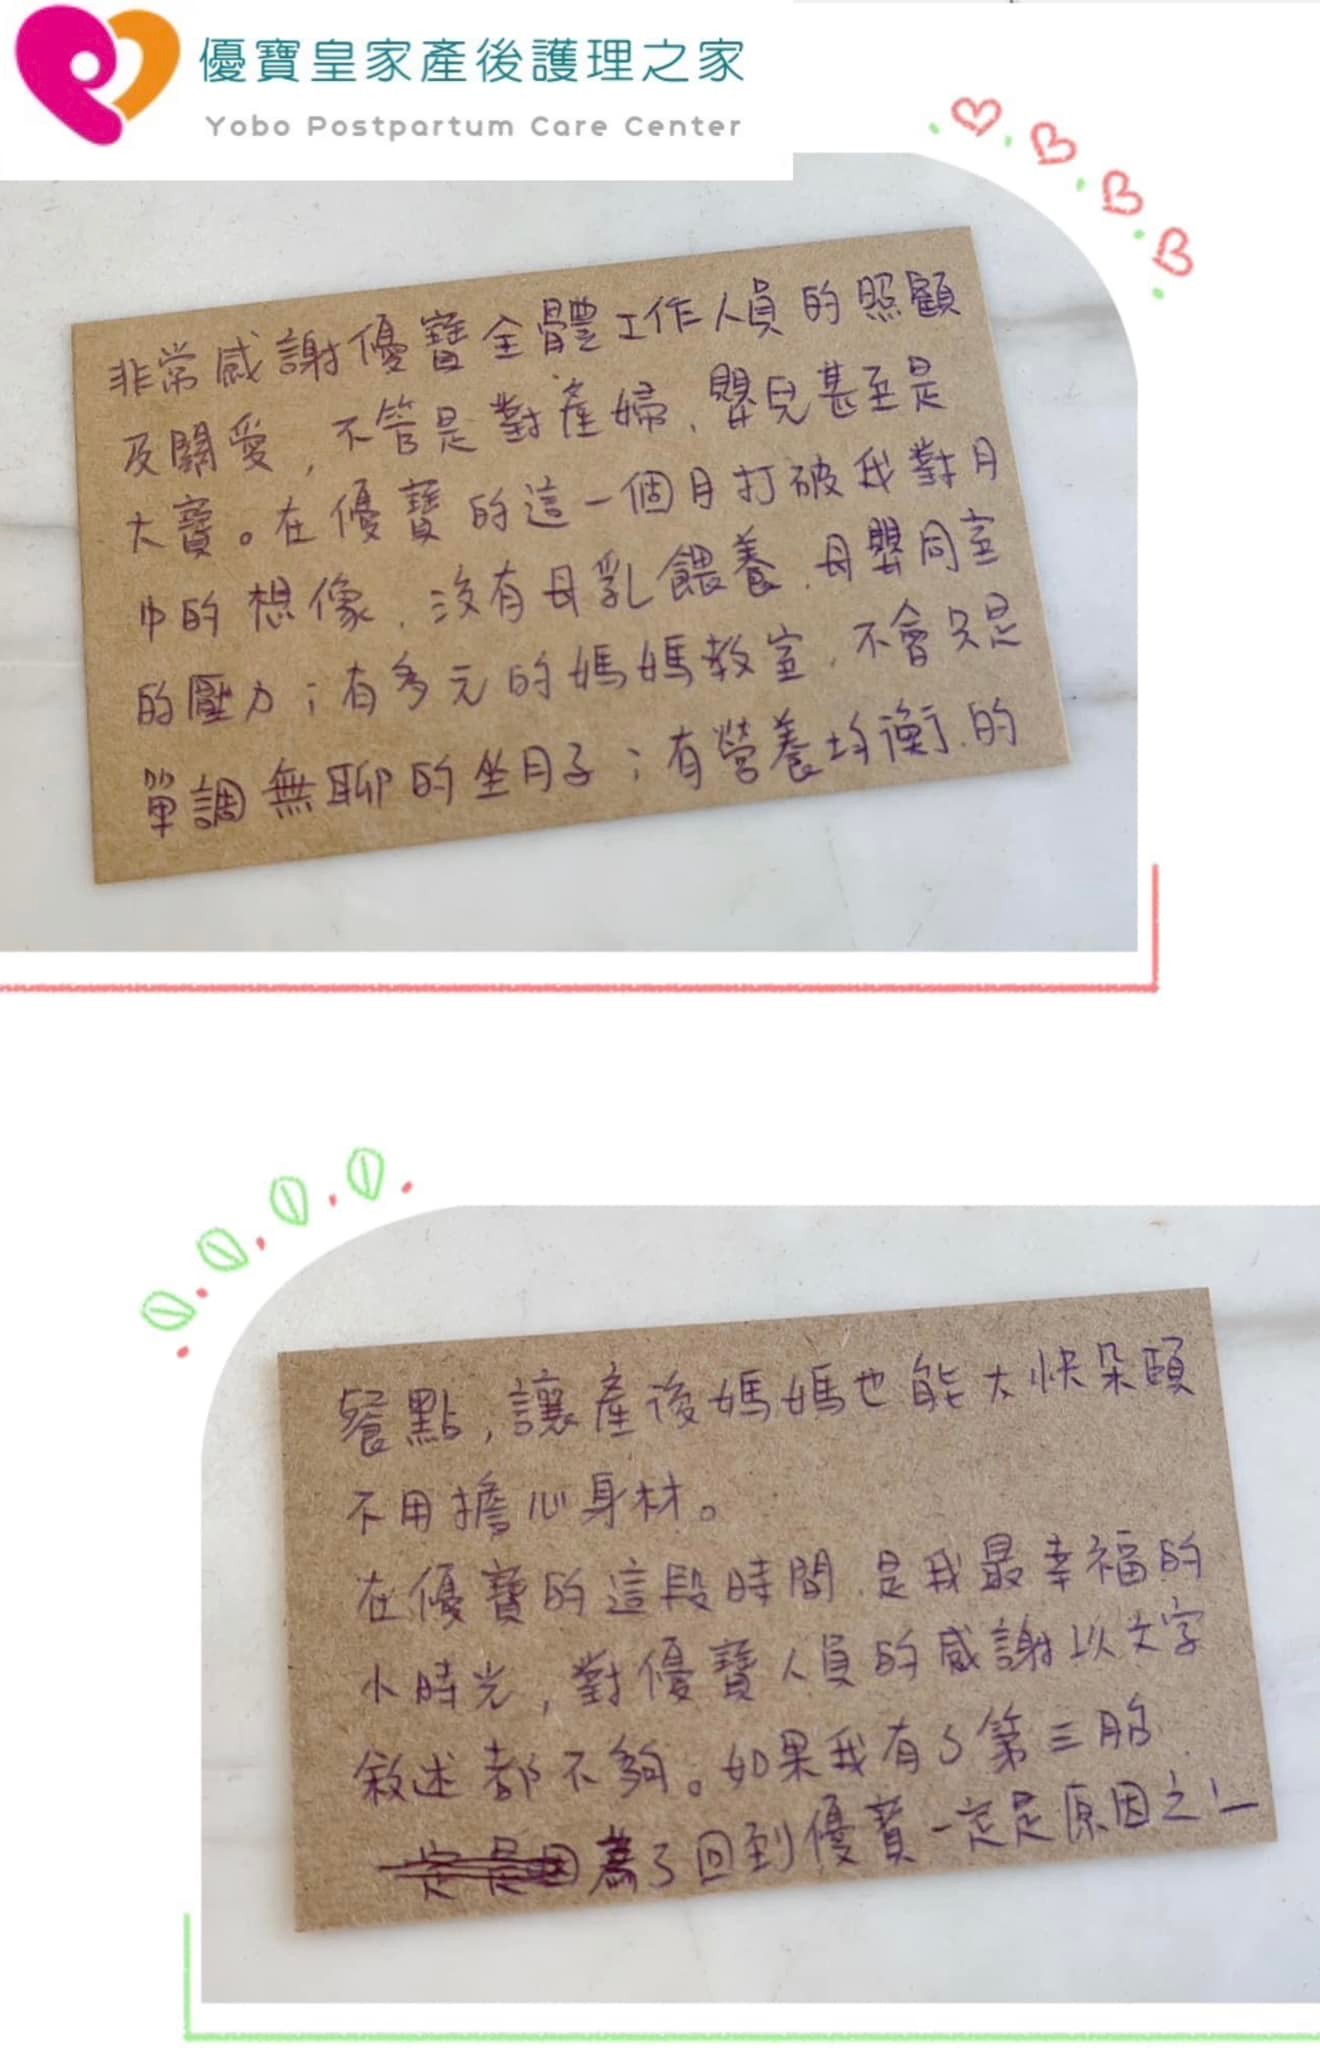 優寶皇家產後護理之家
Yobo Postpartum Care Center
非常感謝優寶全體工作人員的照顧
及關愛，不管是對產婦、嬰兒甚至是
大寶。在優寶的這一個月打破我對月
中的想像，沒有母乳餵養、母嬰同室
的壓力；有多元的媽媽教室，不會只是
單調無聊的坐月子；有營養均衡的
餐點，讓產後媽媽也能大快朵頤
不用擔心身材。
在優寶的這段時間，是我最幸福的
小時光，對優寶人員的感謝以文字
敘述都不夠。如果我有了第三胎
為了回到優寶一定是原因之一